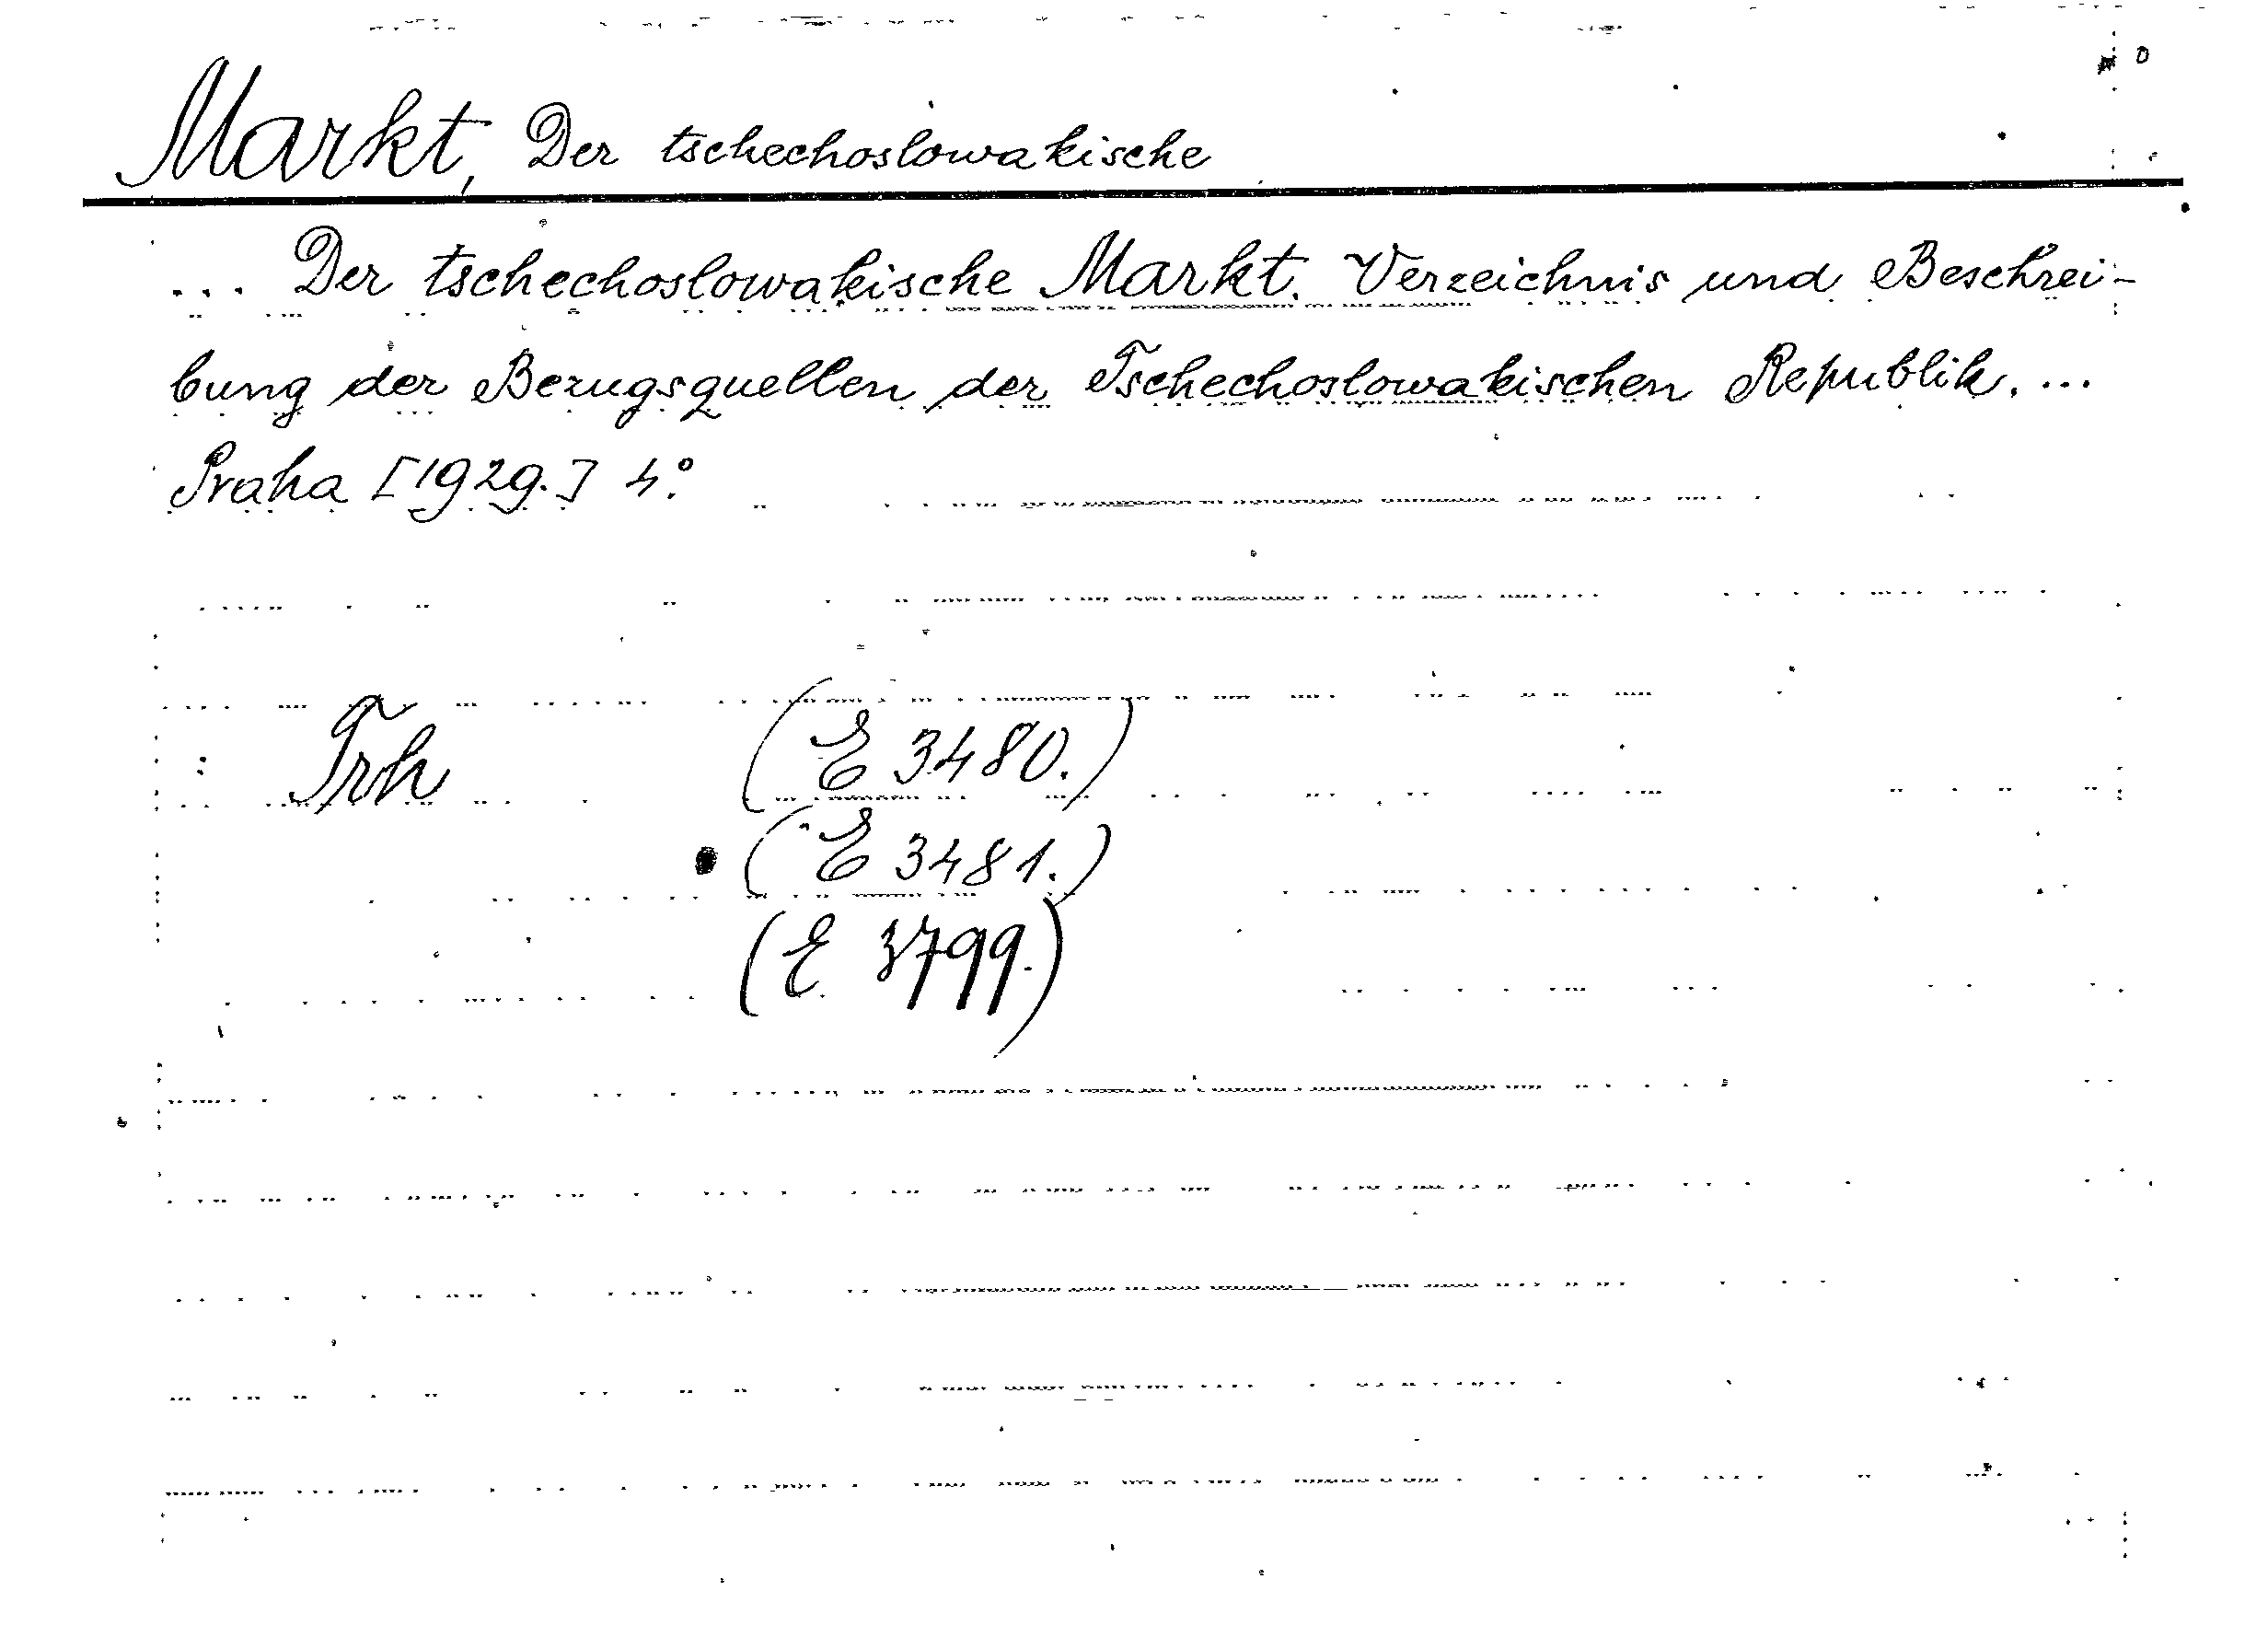 Markt, Der tschechoslowakische
... Der tschechoslowakische Markt. Verzeichnis und Beschrei-
bung der Bezugsquellen der Tschechoslowakischen Republik. ...
Praha [1929.] 4°.
Trh (E 3480.)
(E 3481.)
(E 3799.)